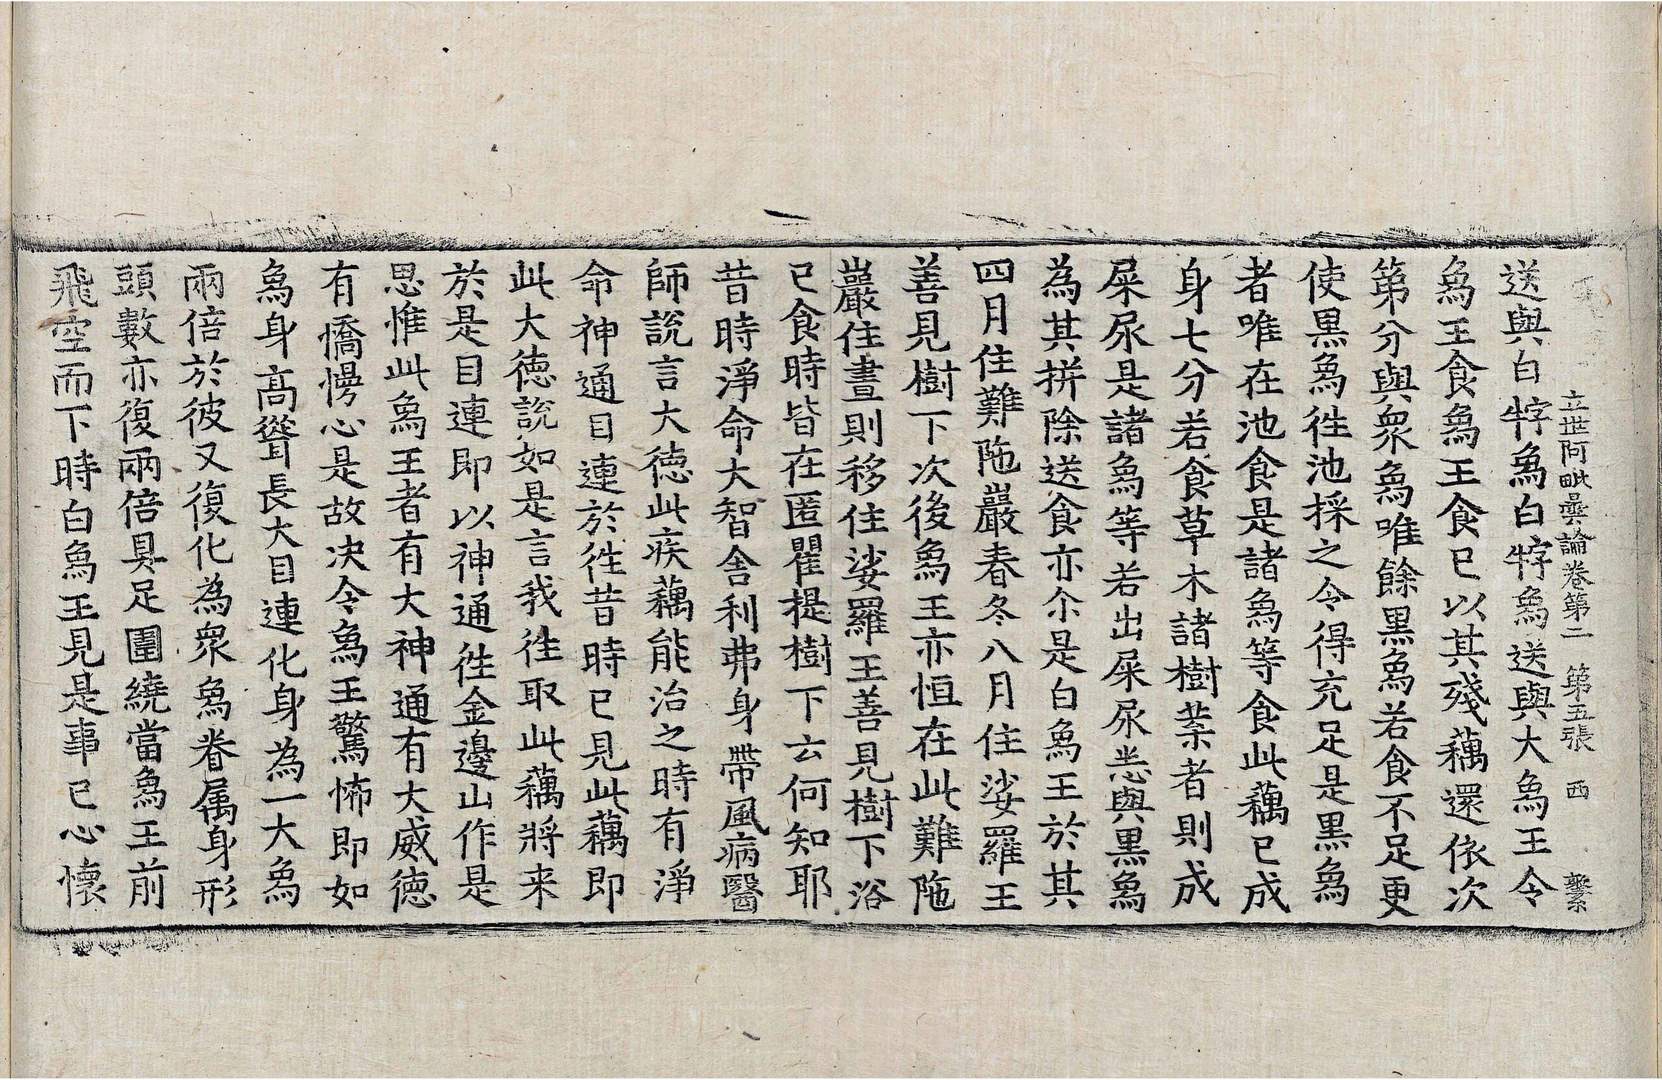 立世阿毗曇論卷第二 第五張 西 繫
送與白牸象白牸象送與大象王令
象王食象王食已以其殘藕還依次
第分與衆象唯餘黑象若食不足更
使黑象往池採之令得充足是黑象
者唯在池食是諸象等食此藕已成
身七分若食草木諸樹葉者則成
屎尿是諸象等若出屎尿悉與黑象
為其拼除送食亦尒是白象王於其
四月住難陁巖春冬八月住娑羅王
善見樹下次後象王亦恒在此難陁
巖住晝則移住娑羅王善見樹下浴
已食時皆在匿瞿提樹下云何知耶
昔時淨命大智舍利弗身帶風病醫
師說言大德此疾藕能治之時有淨
命神通目連於徃昔時已見此藕即
此大德說如是言我徃取此藕將来
於是目連即以神通徃金邊山作是
思惟此象王者有大神通有大威德
有憍慢心是故决令象王驚怖即如
象身高聳長大目連化身為一大象
兩倍於彼又復化為衆象眷属身形
頭數亦復兩倍具足圍繞當象王前
飛空而下時白象王見是事已心懷